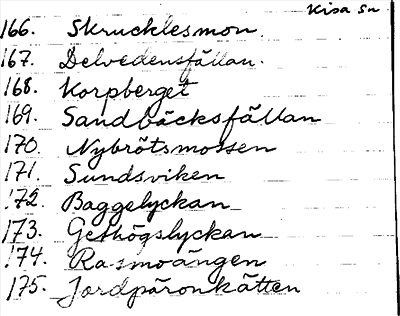 Kisa Sn
166. Skrucklesmon.
167. Delvedensfällan.
168. Korpberget
169. Sandbäcksfällan
170. Nybrötsmossen
171. Sundsviken
172. Baggelyckan
173. Gethögslyckan
174. Rasmoängen
175. Jordpäronkätten